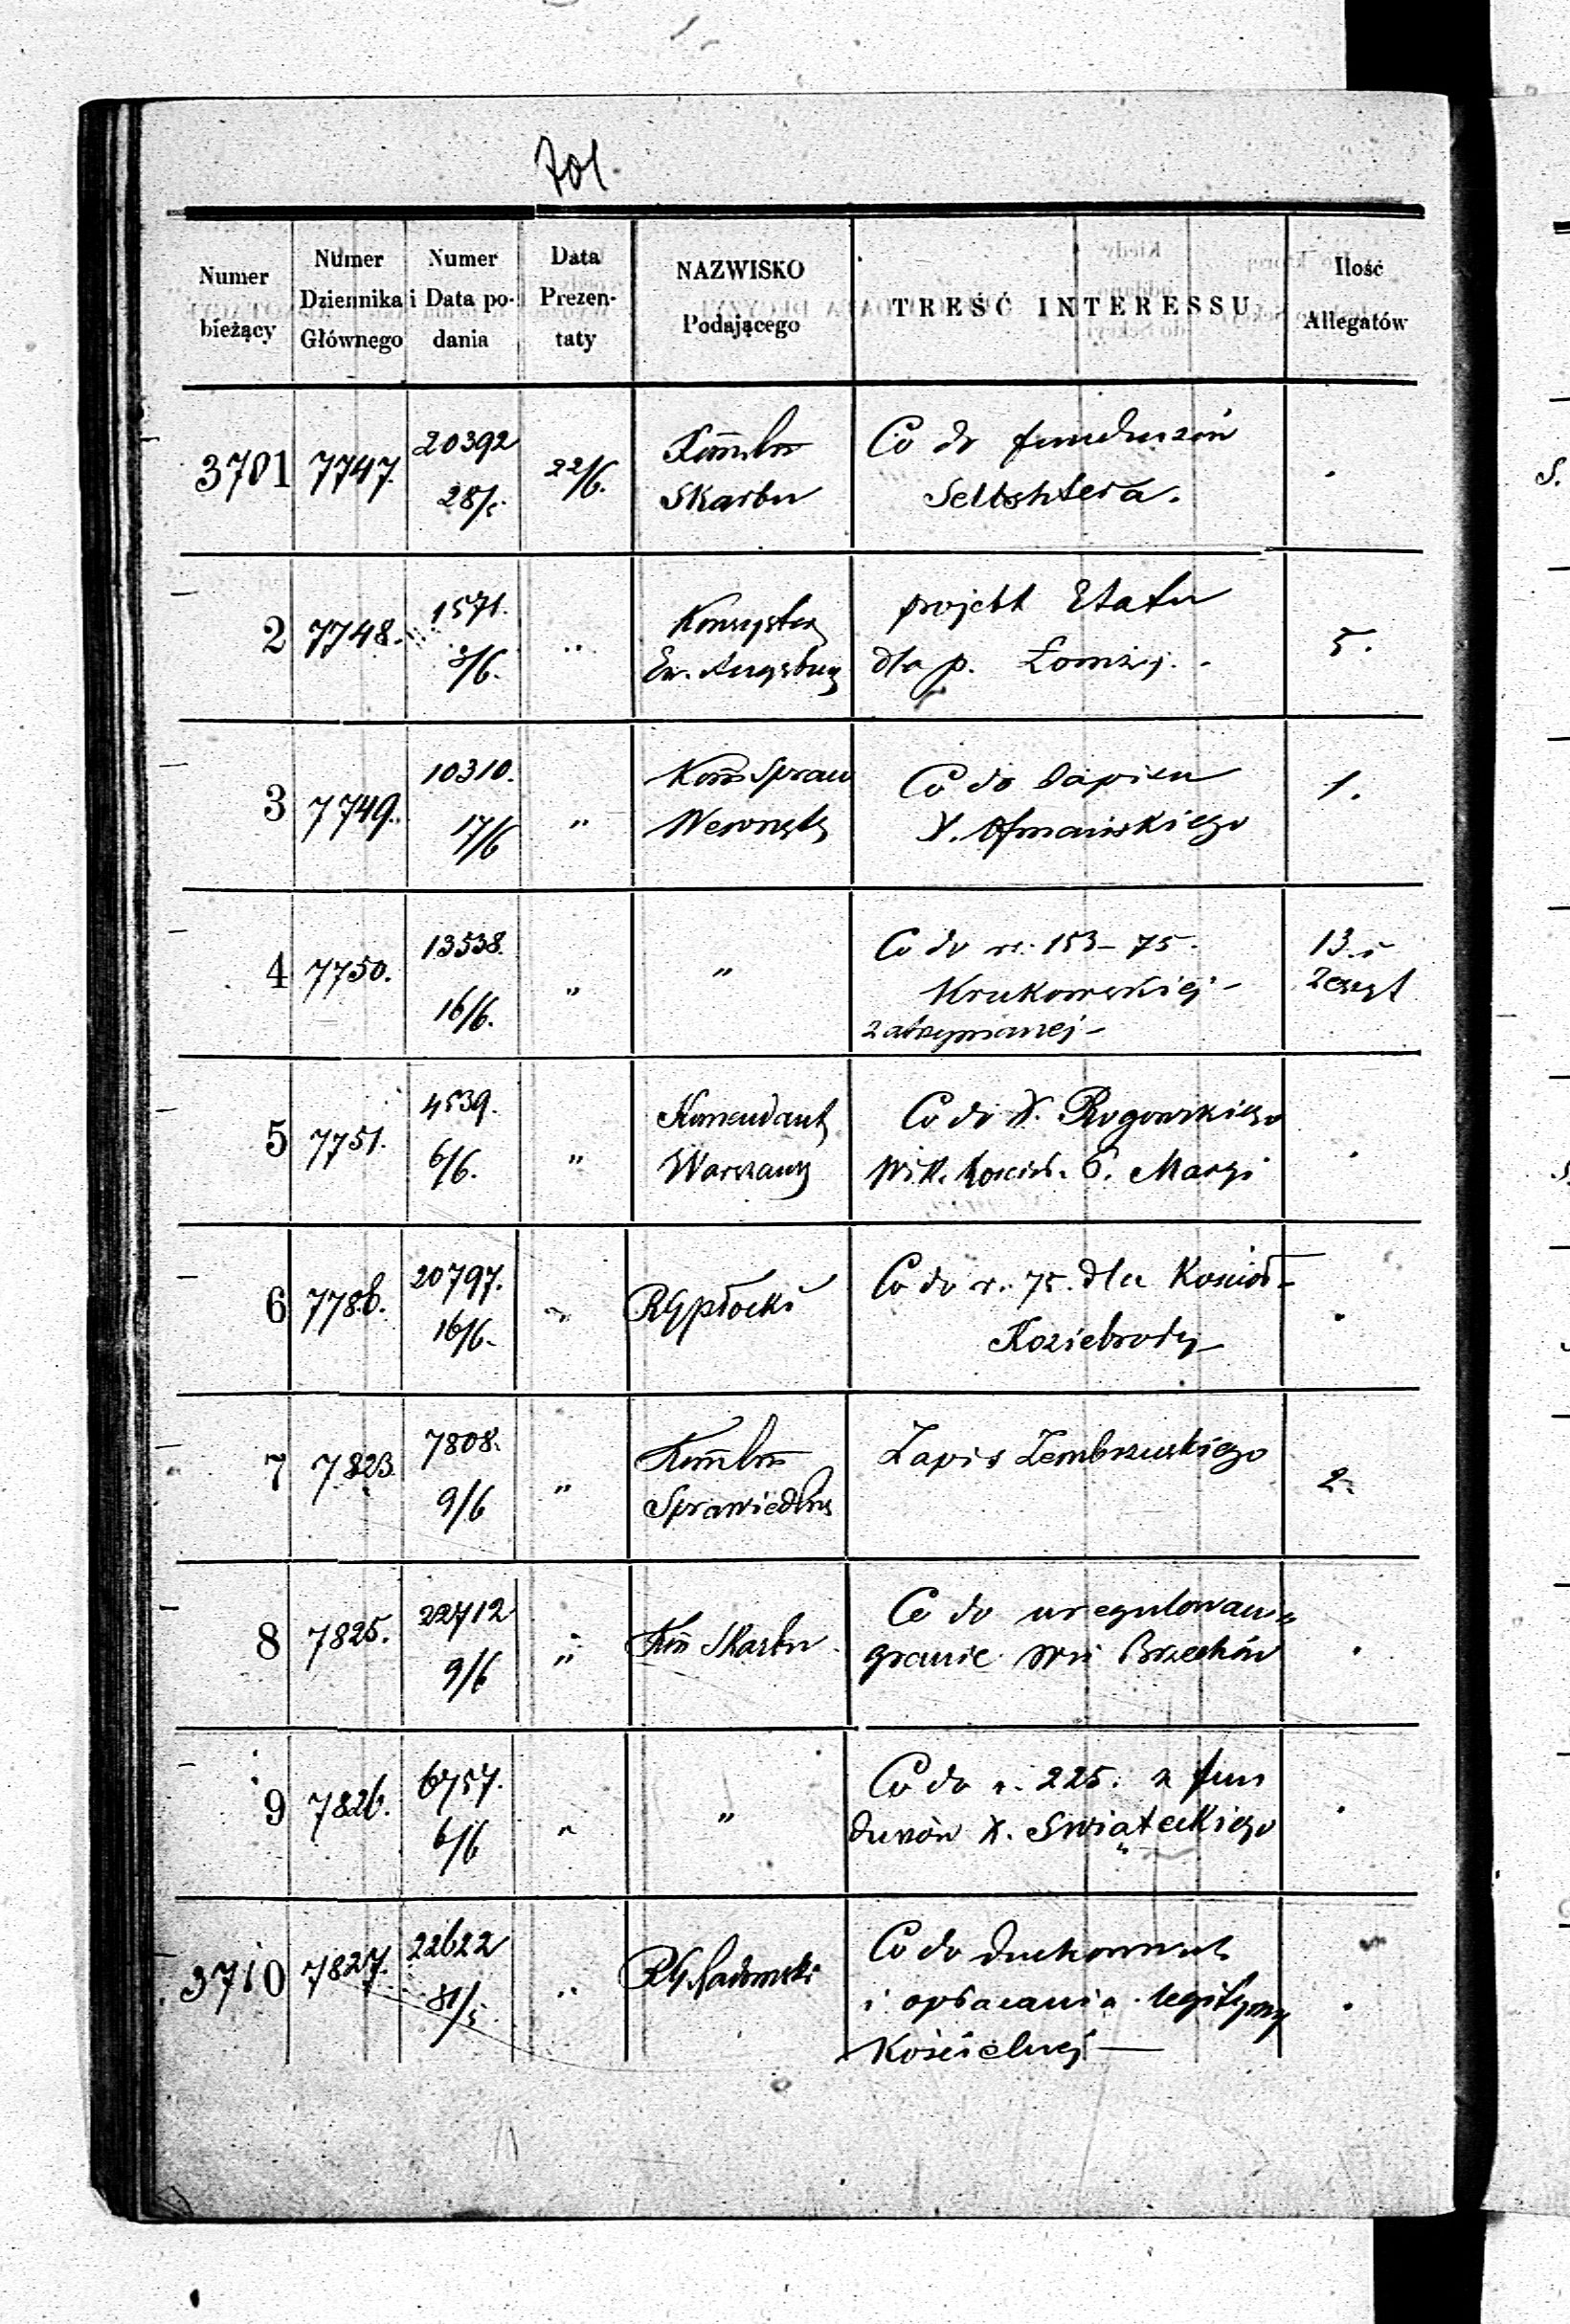 701.
Numer bieżący
Numer Dziennika Głównego
Numer i Data podania
Data Prezentaty
NAZWISKO Podającego
TREŚĆ INTERESSU
Ilość Allegatów
3701 7747. 20392 28/5. 22/6. Skarbu Co do funduszów
.
2 7748. 1571. /6. " Ew. Augsburg projekt Etatu
dla p. Łomżyń. - 5.
3 7749. 10310. 17/6 " Spraw
Wewnętz Co do zapisu
X. 1.
4 7750. 13538. 16/6. " " Co do rs. 153 - 75.
Krukowskiej -
zatrzymanej - 13. i
Zeszyt
5 7751. 4539. 6/6. " Komendant
Warszawy Co do X. Rogowskiego
P. Maryi .
6 7786. 20797. 16/6. " RGPłocki Co do r. 75. dla Kościoł-
Koziebrody .
7 7823. 7808. 9/6 " Zapis Zembrzuskiego 2.
8 7825. 22712 9/6 " Skarbu Co do uregulowan
granic wsi Brzechów .
9 7826. 6757. 6/6 " " Co do r. 225. z fun
duszów X. Swiąteckiego .
3710 7827. 22622 31/5. " RGRadomski Co do
i opłacania legitymy
Kościelnej — .